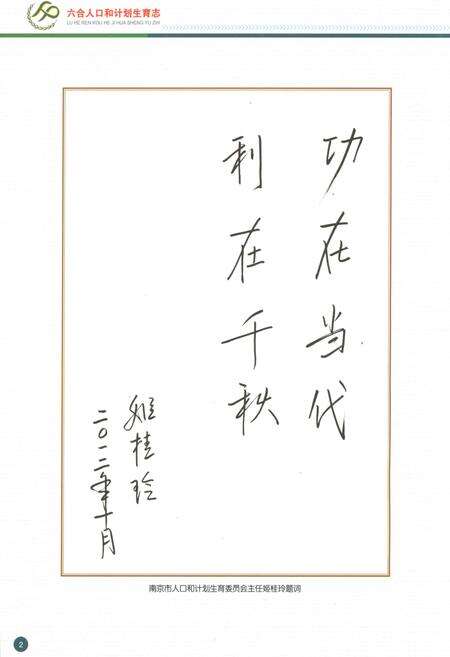 六合人口和计划生育志
LU HE REN KOU HE JI HUA SHENG YU ZHI
功在当代
利在千秋
姬桂玲
二〇一二年十月
南京市人口和计划生育委员会主任姬桂玲题词
2